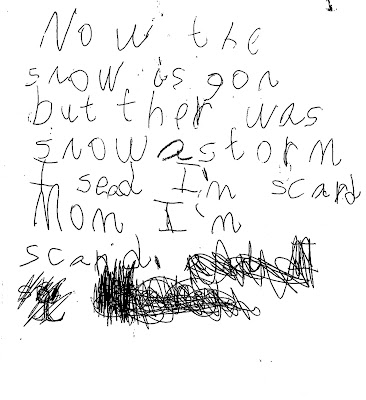 Now the
snow is gon
but ther was
snow a storm
I sead I'm scard
Mom I'm
scard.